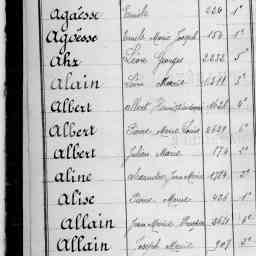 Agaësse Emile 226 1°
Agaësse Emile Marie Joseph 154 1°
Ahr Léon Georges 2232 5°
Alain Léon Marie 3°
Albert Albert 1628 4°
Albert Pierre Marie Louis 2621 6°
Albert Julien Marie 174 2°
Aline Alexandre Jean Marie 1784 2°
Alise Pierre Marie 426 1°
Allain Jean Marie 2651 6°
Allain Joseph Marie 907 2°